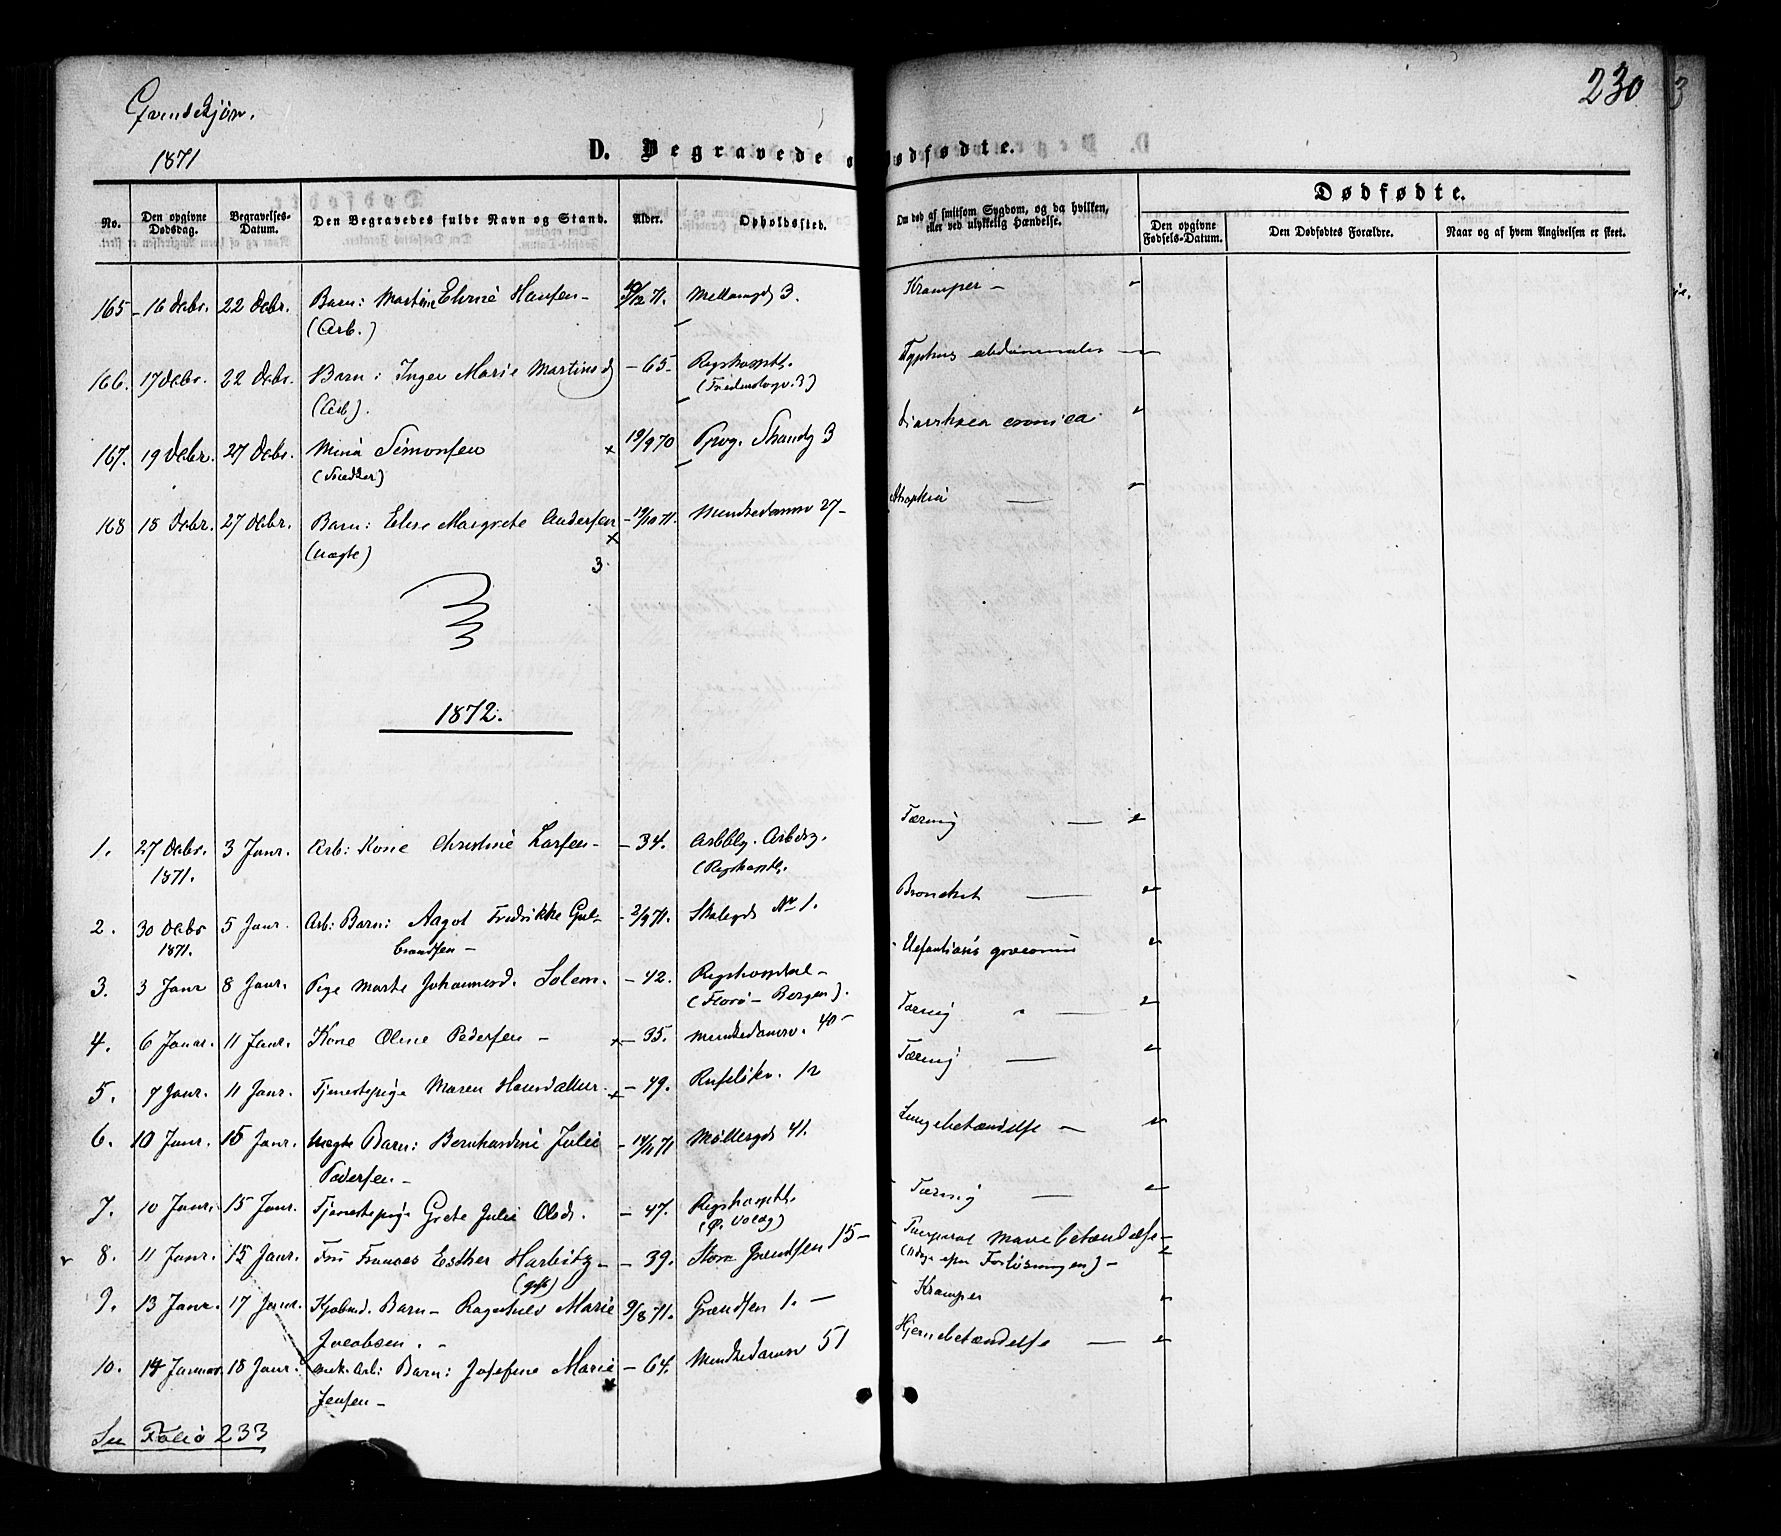 Qvindekjøn.
1871
230
D. Begravede o
Dødfødte.
No.
Den opgivne Dødsdag.
Begravelses-Datum.
Den Begravedes fulde Navn og Stand.
Alder.
Opholdssted.
Om død af smitsom Sygdom, og da hvilken, eller ved ulykkelig Hændelse.
Dødfødte.
Den opgivne Fødsels-Datum.
Den Dødfødtes Forældre.
Naar og af hvem Angivelsen er skeet.
165 - 16 Debr. 22 Debr. Barn: Martine Hansen - /12 71. Mellemgd 3. Kramper -
(Arb.)
166. 17 Debr. 22 Debr. Barn: Inger Marie Martinsd - 65 - Rigshospitl. Typhus abdominalis
(Arb).
167. 19 Debr. 27 Debr. Mina Simonsen 19/9 70 Prog. Strandg 3 Diarrhoea cronica
(Snedker)
168 18 Debr. 27 Debr. Barn: Elise Margrete Andersen - 19/10 71. Munkedamsv 27 - Atrophia
(uægte)
3.
1872.
1. 27 Debr. 3 Janr. Arb: Kone Christine Larsen - - 34. Tæring
1871. (Rigshospitl.
2. 30 Debr 5 Janr. Arb: Barn: Aagot Fredrikke Gul- - 2/9 71. Skolegd No 1. Bronchit
1871. brandsen -
3. 3 Janr 8 Janr. Pige Marte Johannesd. Solem. - 42. Rigshospital - Elefantiasis græcorum
(Florø - Bergen).
4. 6 Janar. 11 Janr. Kone Oline Pedersen - - 35. Munkedamsv. 40 - Tæring
5. 7 Janr. 11 Janr. Tjenestepige Maren Hansdatter. - 49. Ruseløkv. 12 Tæring
6. 10 Janr. 15 Janr. Uægte Barn: Bernhardine Julie - 14/11 71 Møllergd 41. Lungebetændelse -
Pedersen -
7. 10 Janr. 15 Janr. Tjenestepige Grete Julie Olsdr. - 47. Rigshospitl. Tæring
8. 11 Janr. 15 Janr. Fru Frances Esther Harbitz - - 39. Store Grændsen 15 - Puerperal Mavebetændelse -
(gift) (8 dage efter Forløsningen) -
9. 13 Janr. 17 Janr. Kjøbmd. Barn - Ragnhild Marie 9/8 71. Grændsen 1. - Kramper
Jacobsen. -
10. 14 Januar 18 Janr. Arb: Barn: Josefine Marie - 64. Munkedamsv 51 Hjernebetændelse
Jensen -
Se Folio 233